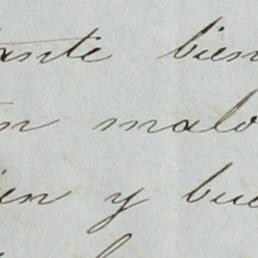 ante bien
n malo
en y bue